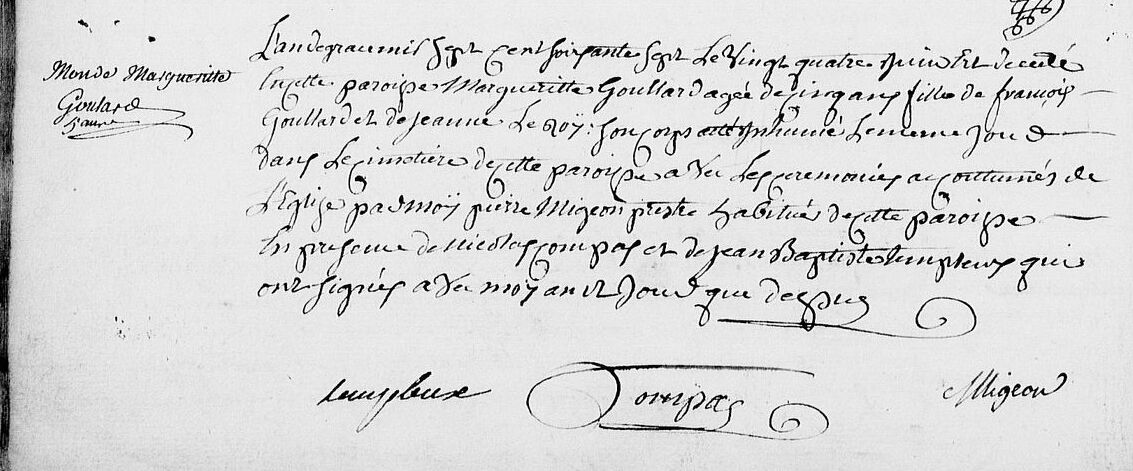 L'an de grace mil sept cent soixante sept Le vingt quatre juin Est decedé
Mon de Margueritte
Goulard
5 ans
En cette paroisse Margueritte Goullard agée de cinq ans fille de francois
Goullard et de jeanne Le Roÿ: son corps a été Inhumé Le meme jour
dans Le cimetiere de cette paroisse avec Les ceremonies accoutumés de
L'Eglise par moÿ pierre Migeon prestre habitué de cette paroisse
En presence de Nicolas Compas et de jean Baptiste qui
ont signés avec moÿ an et jour que dessus
Compas
Migeon